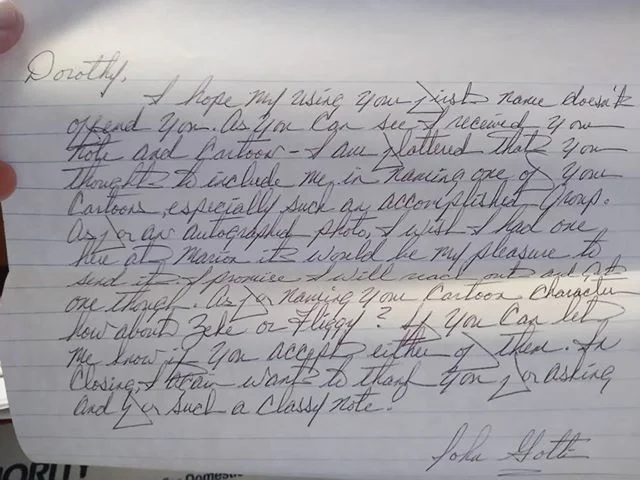 Dorothy,
I hope my using your first name doesn't
offend you. As you can see, I received your
note and cartoon - I am flattered that you
thought to include me in naming one of your
cartoons, especially such an accomplished group.
As for an autographed photo, I wish I had one
here at Marion it would be my pleasure to
send it. I promise I will reach out and get
one though. As for naming your cartoon character
how about Zeke or Fliggy? If you can let
me know if you accept either of them. In
closing, I again want to thank you for asking
and for such a classy note.
John Gotti
ORITY
Domestic